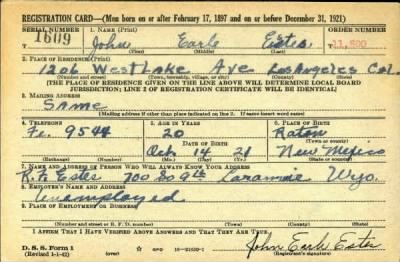 REGISTRATION CARD—(Men born on or after February 17, 1897 and on or before December 31, 1921)
SERIAL NUMBER 1. NAME (Print) ORDER NUMBER
1609 John Earle Estes 11,500
(First) (Middle) (Last)
2. PLACE OF RESIDENCE (Print)
1206 West Lake Ave Los Angeles Cal.
(Number and street) (Town, township, village, or city) (County) (State)
[THE PLACE OF RESIDENCE GIVEN ON THE LINE ABOVE WILL DETERMINE LOCAL BOARD
JURISDICTION; LINE 2 OF REGISTRATION CERTIFICATE WILL BE IDENTICAL]
3. MAILING ADDRESS
Same
[Mailing address if other than place indicated on line 2. If same insert word same]
4. TELEPHONE 5. AGE IN YEARS 6. PLACE OF BIRTH
Fe. 9544 20 Raton
DATE OF BIRTH (Town or county)
Oct 14 21 New Mexico
(Exchange) (Number) (Mo.) (Day) (Yr.) (State or country)
7. NAME AND ADDRESS OF PERSON WHO WILL ALWAYS KNOW YOUR ADDRESS
R. F. Estes 700 So 9th Laramie Wyo.
8. EMPLOYER'S NAME AND ADDRESS
Unemployed
9. PLACE OF EMPLOYMENT OR BUSINESS
(Number and street or R. F. D. number) (Town) (County) (State)
I AFFIRM THAT I HAVE VERIFIED ABOVE ANSWERS AND THAT THEY ARE TRUE.
D. S. S. Form 1
(Revised 1-1-42) (over) John Earle Estes